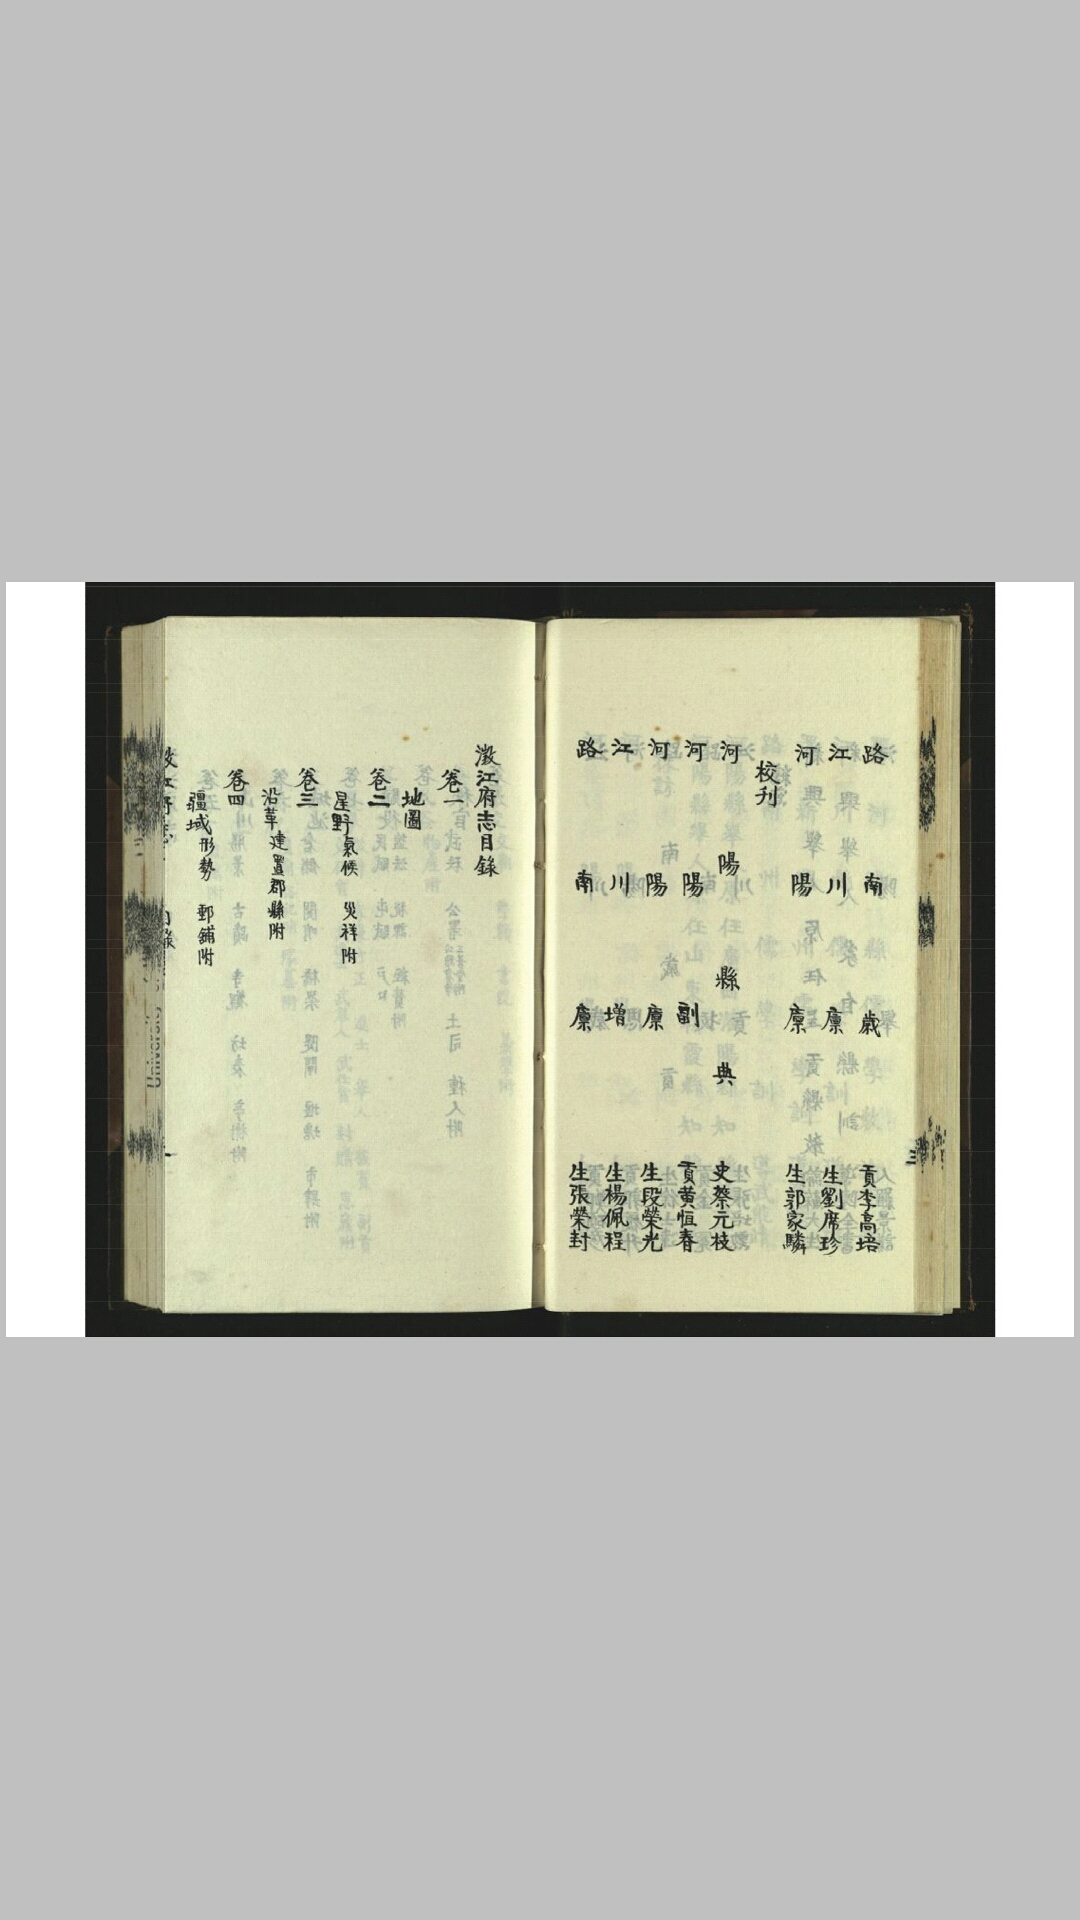 路南歲貢李高培
江川廩生劉席珍
河陽廩生郭家驎
校刊
河陽縣典史蔡元枝
河陽副貢黄恒春
河陽廩生段榮光
江川增生楊佩程
路南廩生張榮封
三
澂江府志目錄
卷一
地圖
卷二
星野 氣候 災祥附
卷三
沿革 建置郡縣附
卷四
疆域 形勢 郵鋪附